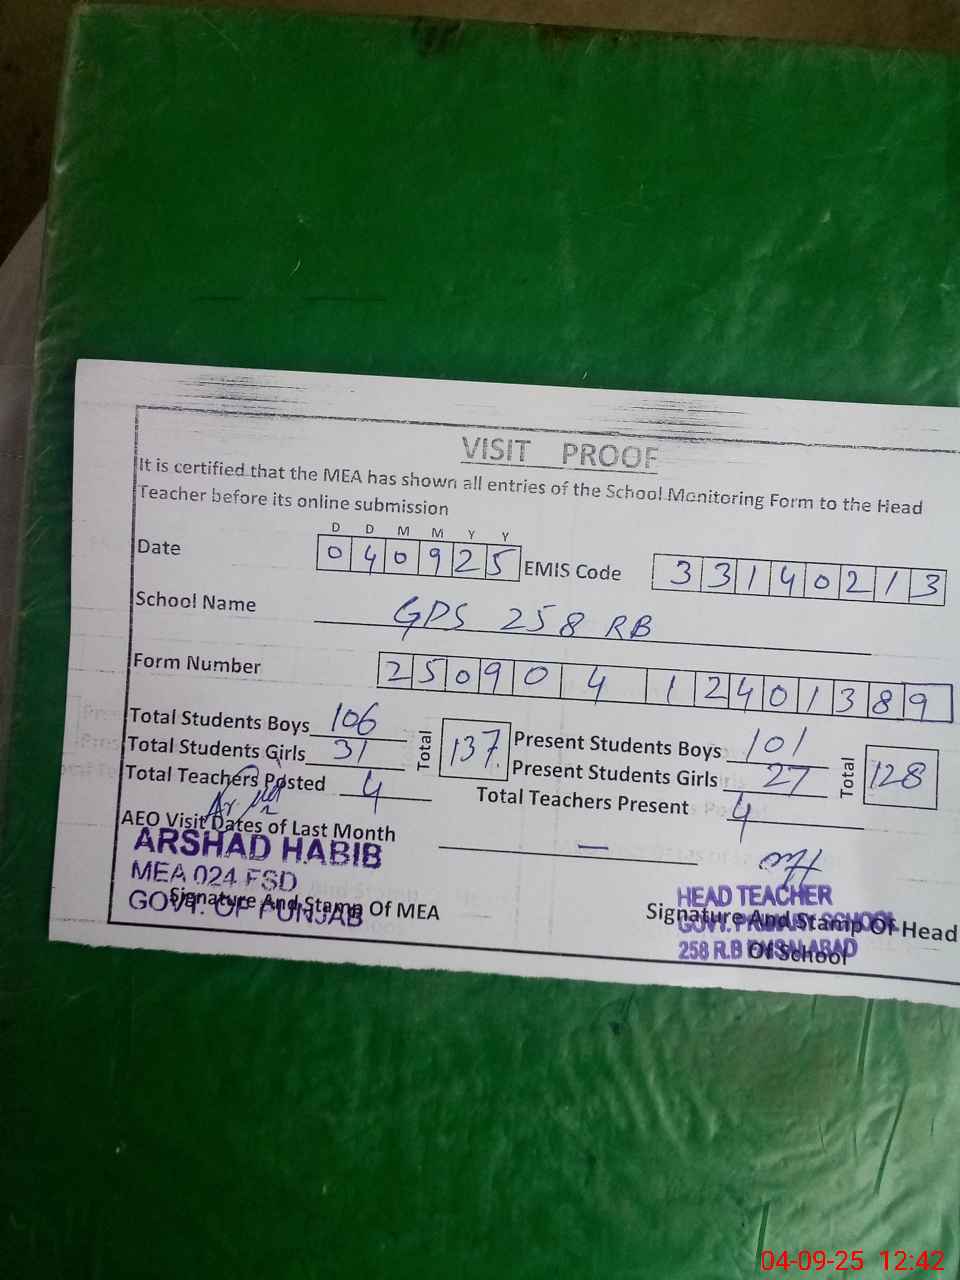 VISIT PROOF
It is certified that the MEA has shown all entries of the School Monitoring Form to the Head
Teacher before its online submission
D D M M Y Y
Date 040925 EMIS Code 33140213
School Name GPS 258 RB
Form Number 250904 12401389
Total Students Boys 106 Total 137 Present Students Boys 101 Total 128
Total Students Girls 31 Present Students Girls 27
Total Teachers Posted 4 Total Teachers Present 4
AEO Visit Dates of Last Month —
ARSHAD HABIB
MEA 024 FSD
GOVT. OF PUNJAB
Signature And Stamp Of MEA
HEAD TEACHER
GOVT. PRIMARY SCHOOL
258 R.B FAISALABAD
Signature And Stamp Of Head
Of School
04-09-25 12:42